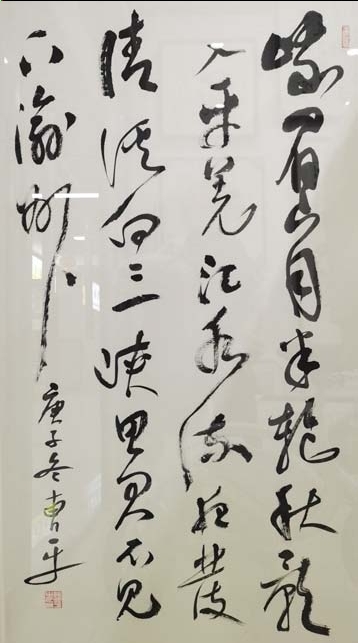 峨眉山月半輪秋影
入平羌江水流夜發
清溪向三峽思君不見
下渝州
庚子冬曹平